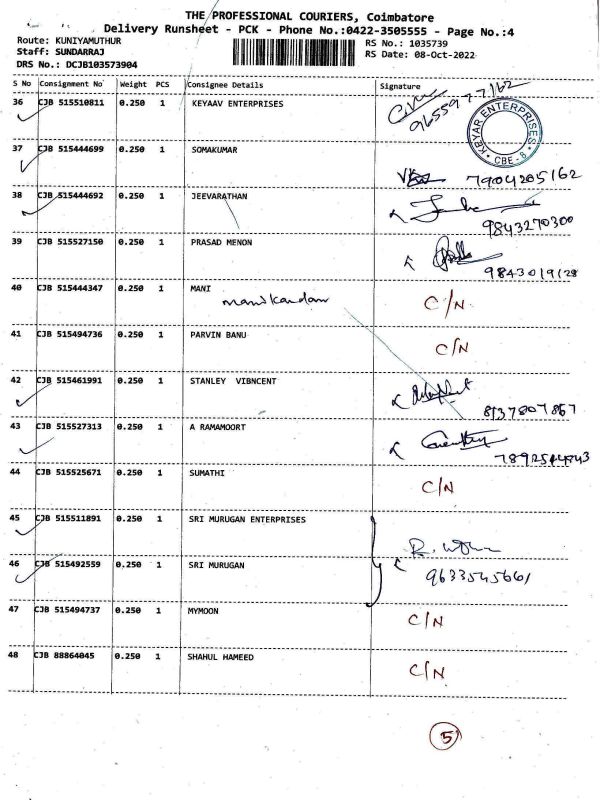 THE PROFESSIONAL COURIERS, Coimbatore
Delivery Runsheet - PCK - Phone No.:0422-3505555 - Page No.:4
Route: KUNIYAMUTHUR
RS No.: 1035739
Staff: SUNDARRAJ
RS Date: 08-Oct-2022
DRS No.: DCJB103573904
S No Consignment No Weight PCS Consignee Details Signature
36 CJB 515510811 0.250 1 KEYAAV ENTERPRISES
KEYAR ENTERPRISES
CBE-8
37 CJB 515444699 0.250 1 SOMAKUMAR
7904205162
38 CJB 515444692 0.250 1 JEEVARATHAN
9843270300
39 CJB 515527150 0.250 1 PRASAD MENON
9843019128
40 CJB 515444347 0.250 1 MANI C/N
manikandam
41 CJB 515494736 0.250 1 PARVIN BANU C/N
42 CJB 515461991 0.250 1 STANLEY VIBNCENT
8137807867
43 CJB 515527313 0.250 1 A RAMAMOORT
44 CJB 515525671 0.250 1 SUMATHI C/N
45 CJB 515511891 0.250 1 SRI MURUGAN ENTERPRISES
46 CJB 515492559 0.250 1 SRI MURUGAN
9633545661
47 CJB 515494737 0.250 1 MYMOON C/N
48 CJB 88864045 0.250 1 SHAHUL HAMEED C/N
5